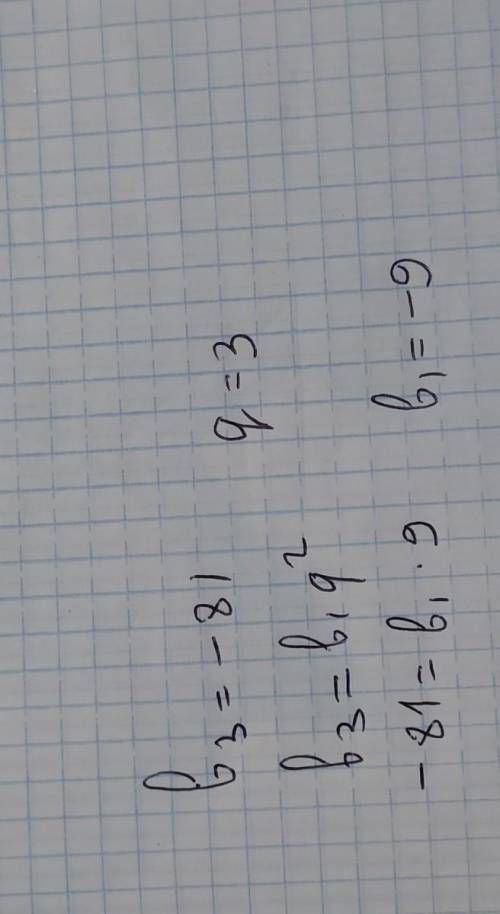 b₃ = -81 q = 3
b₃ = b₁q²
-81 = b₁ · 9 b₁ = -9